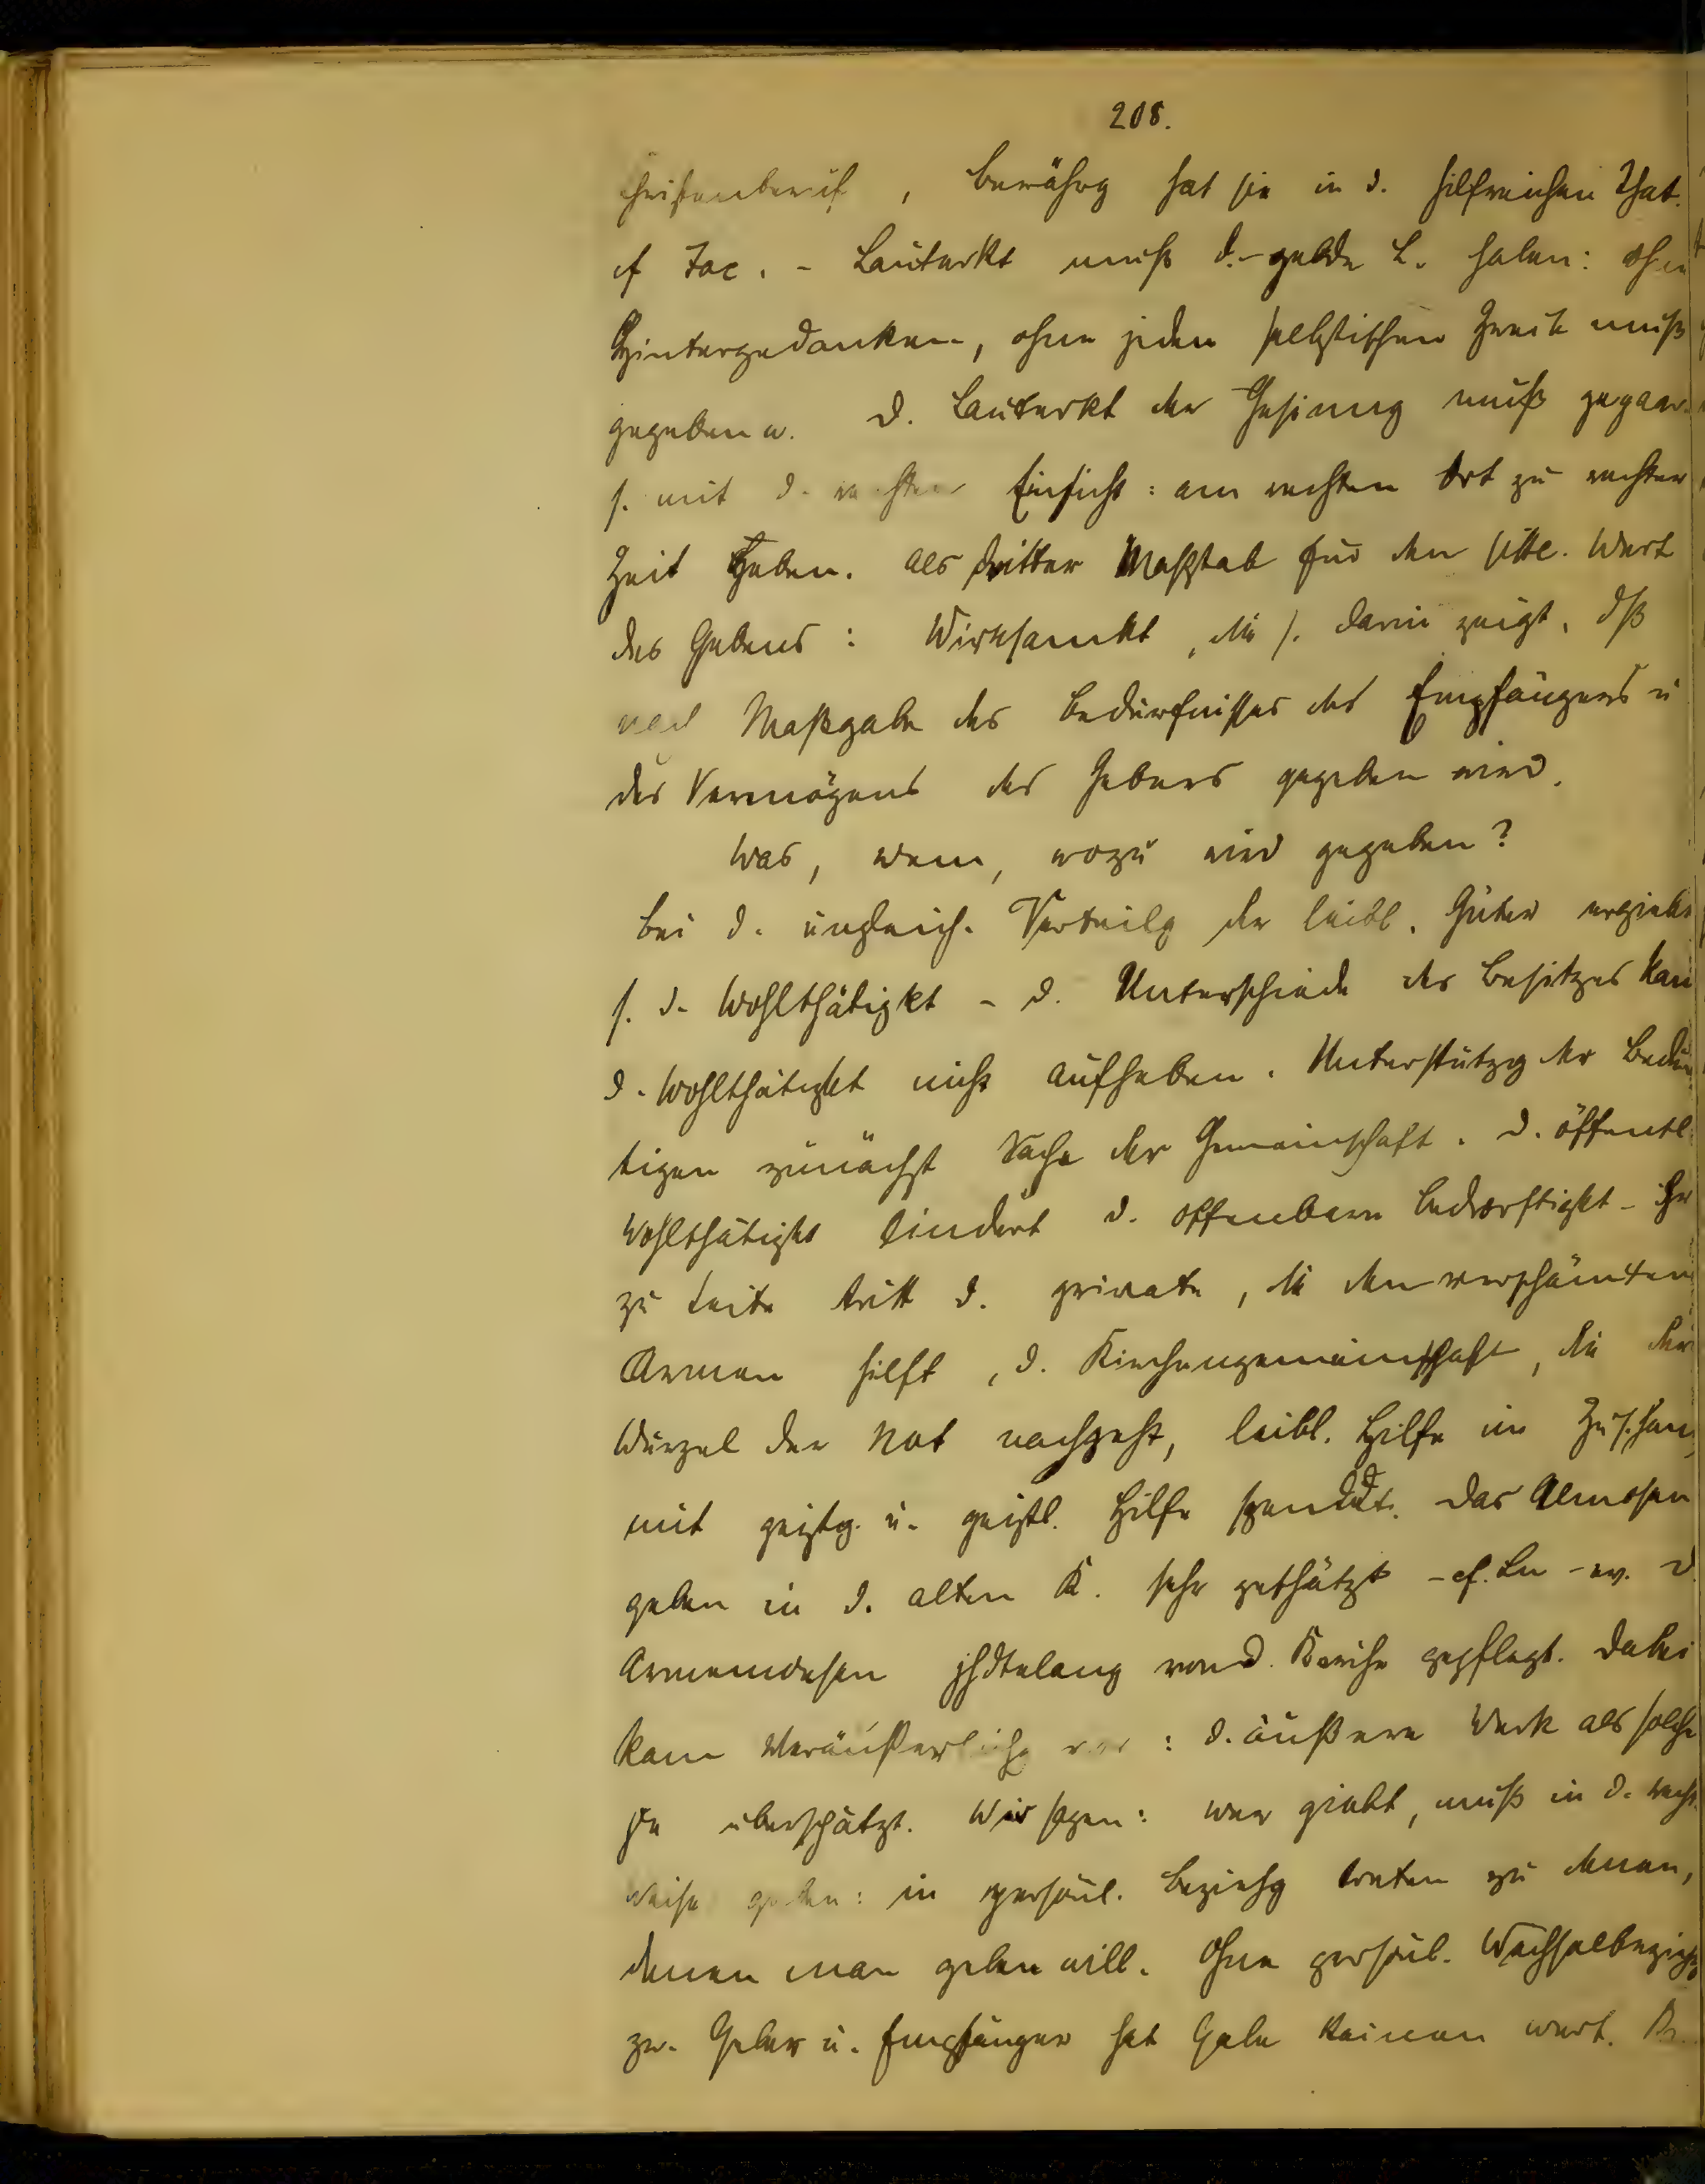 208.
christenberuf, bewährg hat sie in d. hilfreichen That.
cf Jac. - Lauterkt muß d. gebde L. haben: ohne
Hintergedanken, ohne jeden selbstischen Zweck muß
gegeben w. D. Lauterkt der Gesinnug muß gepaar
s. mit d. rechten Einsicht: am rechten Ort zu rechter
Zeit Geben. Als dritter Maßstab für den sittl. Wert
des Gebens: Wirksamkt, die s. darin zeigt, dß
nach Maßgabe des Bedürfnisses des Empfängers u
des Vermögens des Gebers gegeben wird.
Was, wem, wozu wird gegeben?
Bei d. ungleich. Verteilg der leibl. Güter ergiebt
s. d. Wohlthätigkt - d. Unterschiede des Besitzes kan
d. Wohlthätigkt nicht aufheben. Unterstützg der Bedürf
tigen zunächst Sache der Gemeinschaft. D. öffentl
Wohlthätigkt lindert d. offenbare Bedürftigkt - ihr
zu Seite tritt d. private, die den verschämten
Armen hilft, d. Kirchengemeinschaft, die der
Wurzel der Not nachgeht, leibl. Hilfe im Zus.han
mit geistg. u. geistl. Hilfe spendet. Das Almosen
geben in d. alten K. sehr geschätzt - cf. Lu - ev. D.
Armenwesen jhdtelang von d. Kirche gepflegt. Dabei
kam Veräußerlichg vor: d. äußere Werk als solche
überschätzt. Wir sagen: wer giebt, muß in d. recht.
Weise geben: in persönl. Beziehg treten zu denen,
denen man geben will. Ohne persönl. Wechselbeziehg
zw. Geber u. Empfänger hat Gabe keinen wert.